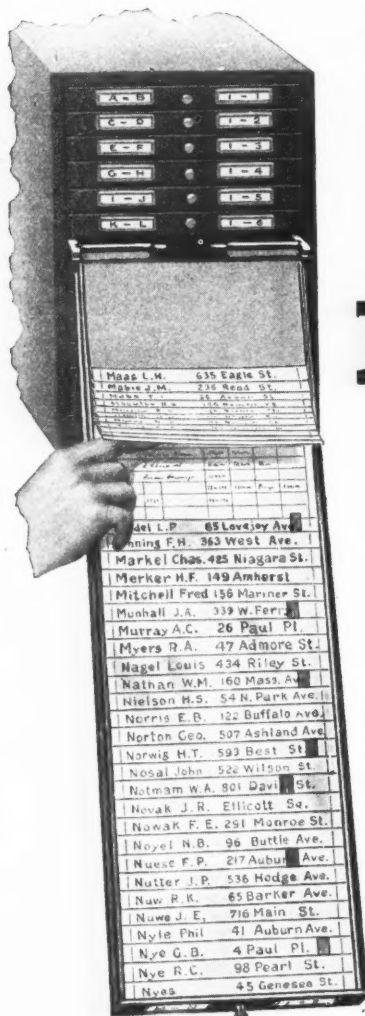 A-B 1-1
C-D 1-2
E-F 1-3
G-H 1-4
I-J 1-5
K-L 1-6
Maas L.H. 635 Eagle St.
Mabie J.M. 236 Read St.
del L.P. 65 Lovejoy Ave
nning F.H. 363 West Ave.
Markel Chas. 425 Niagara St.
Merker H.F. 149 Amherst
Mitchell Fred 156 Mariner St.
Munhall J.A. 339 W. Ferry
Murray A.C. 26 Paul Pl.
Myers R.A. 47 Admore St.
Nagel Louis 434 Riley St.
Nathan W.M. 160 Mass. Ave
Nielson H.S. 54 N. Park Ave.
Norris E.B. 122 Buffalo Ave.
Norton Geo. 507 Ashland Ave.
Norwig H.T. 593 Best St.
Nosal John 522 Wilson St.
Notmam W.A. 801 Davi St.
Novak J.R. Ellicott Sq.
Nowak F.E. 291 Monroe St.
Noyel N.B. 96 Buttle Ave.
Nuese F.P. 217 Aubur Ave.
Nutter J.P. 536 Hodge Ave.
Nuw R.K. 65 Barker Ave.
Nuwe J.E, 716 Main St.
Nyle Phil 41 Auburn Ave.
Nye G.B. 4 Paul Pl.
Nye R.C. 98 Pearl St.
Nyes 45 Genesea St.